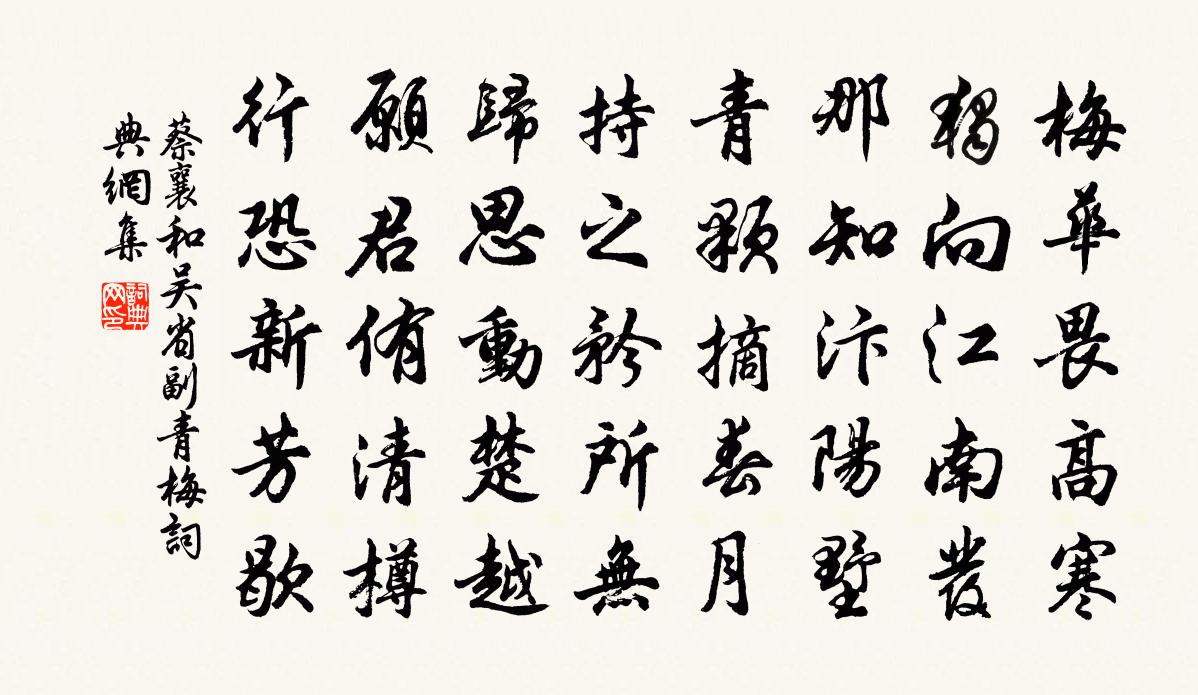 梅華畏高寒
獨向江南發
那知汴陽墅
青顆摘春月
持之矜所無
歸思動楚越
願君侑清樽
行恐新芳歇
蔡襄和吴省副青梅詞
典網集
詞典
网印